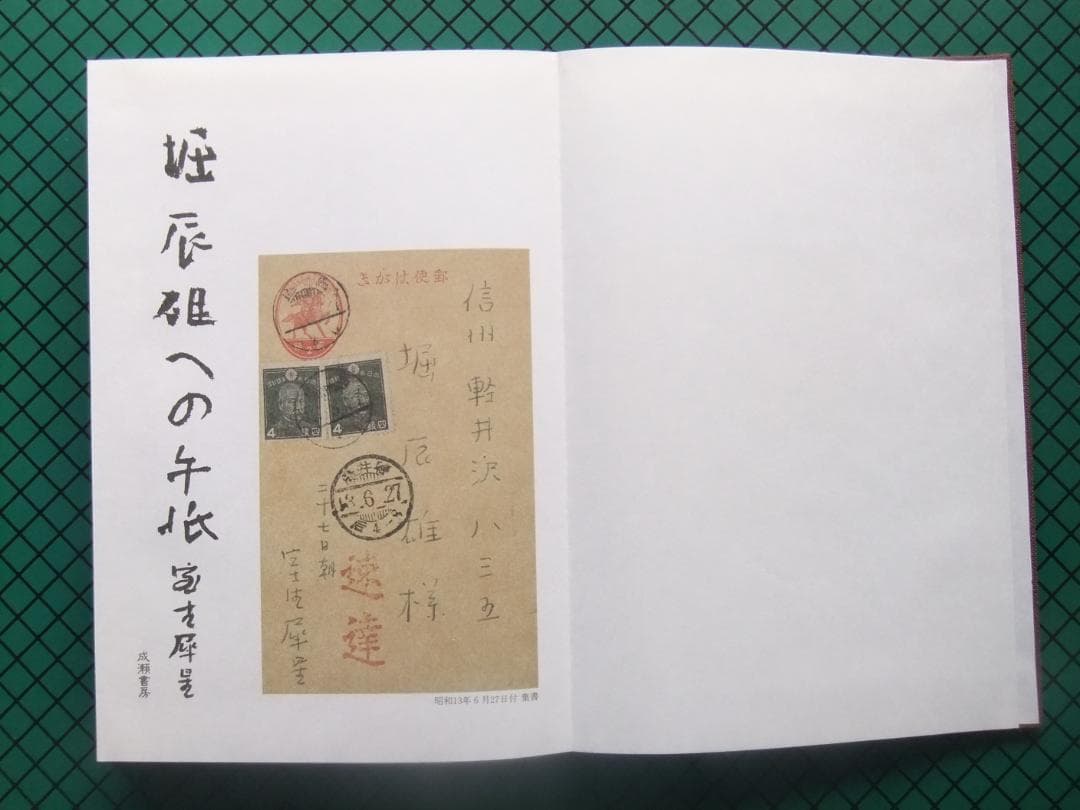 堀辰雄への手紙 室生犀星
成瀬書房
郵便はがき
信州軽井沢八三五
堀辰雄様
二十七日朝
室生犀星
速達
4 四銭
4 四銭
13.6.27
昭和13年6月27日付 葉書